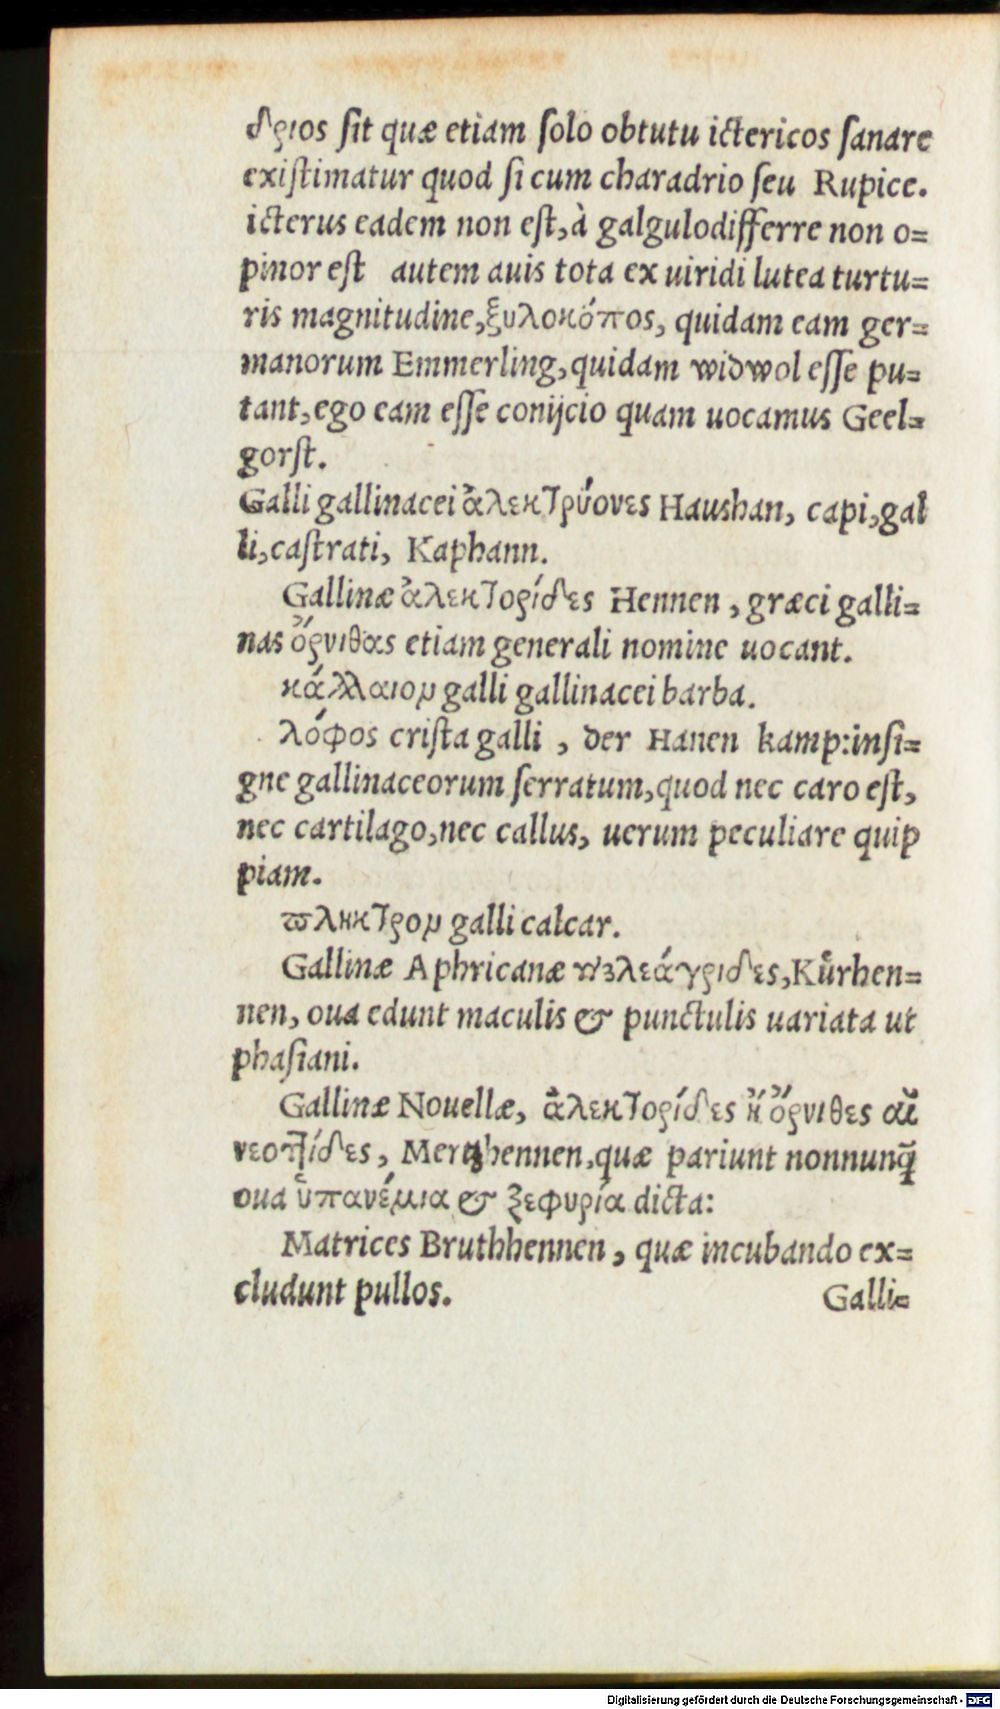 δριος sit quæ etiam solo obtutu ictericos sanare
existimatur quod si cum charadrio seu Rupice.
icterus eadem non est, à galgulo differre non o=
pinor est autem auis tota ex uiridi lutea turtu=
ris magnitudine, ξυλοκόπος, quidam eam ger=
manorum Emmerling, quidam widwol esse pu=
tant, ego eam esse conijcio quam uocamus Geel=
gorst.
Galli gallinacei ἀλεκτρύονες Haushan, capi, gal
li, castrati, Kaphann.
Gallinæ ἀλεκτορίδες Hennen, græci galli=
nas ὄρνιθας etiam generali nomine uocant.
κάλλαιον galli gallinacei barba.
λόφος crista galli, der Hanen kamp: insi=
gne gallinaceorum serratum, quod nec caro est,
nec cartilago, nec callus, uerum peculiare quip
piam.
πλῆκτρον galli calcar.
Gallinæ Aphricanæ μελεάγριδες, Kůrhen=
nen, oua edunt maculis & punctulis uariata ut
phasiani.
Gallinæ Nouellæ, ἀλεκτορίδες ἢ ὄρνιθες αἱ
νεοττίδες, Mertzhennen, quæ pariunt nonnunq̃
oua ὑπανέμια & ζεφυρία dicta:
Matrices Bruthhennen, quæ incubando ex=
cludunt pullos.
Galli=
Digitalisierung gefördert durch die Deutsche Forschungsgemeinschaft - DFG